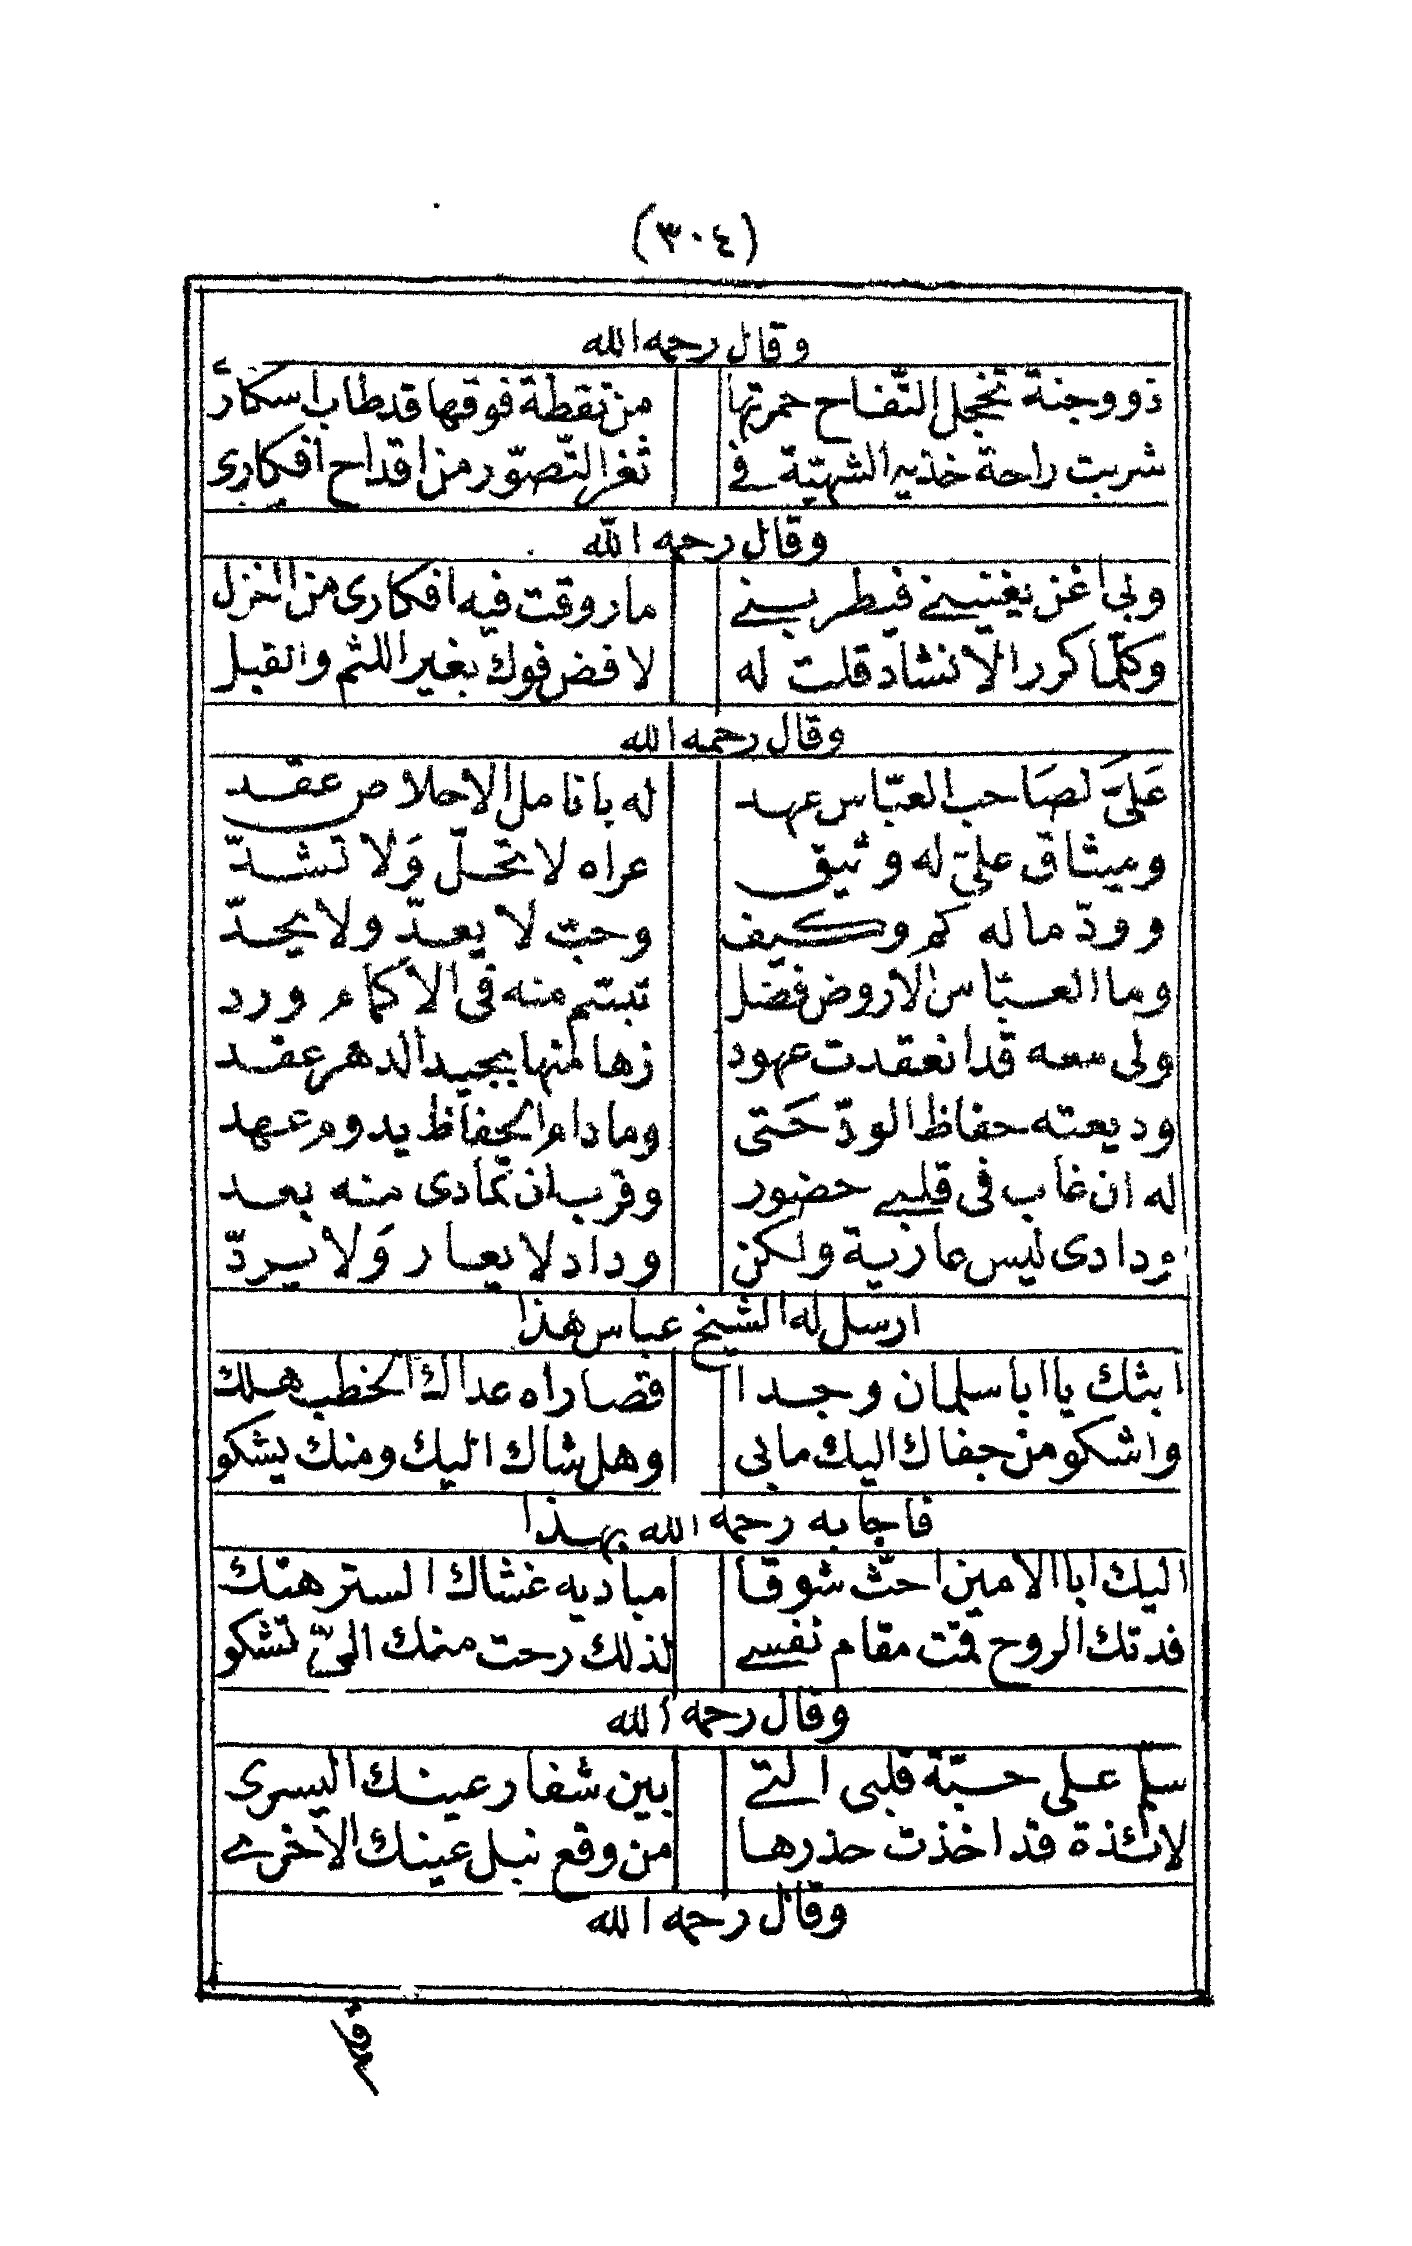 (٣٠٤)
وقال رحمه الله
ذو وجنة تخجل التّفاح حمرتها من نقطة فوقها قد طاب اسكارى
شربت راحة خذيه الشهيّة في ثغر التّصوّر من اقداح افكارى
وقال رحمه اللّه
وبى اغن يغنيني فيطربني ما روقت فيه افكارى من الغزل
وكلّما كرر الانشاد قلت له لا فض فوك بغير اللثم والقبل
وقال رحمه الله
عَلَىَّ لصَاحب العبّاس عهد له بانامل الاخلاص عقد
وميثاق علىّ له وثيق عراه لا تحلّ وَلا تشدّ
وودّ ما له كم وكيف وحبّ لا يعدّ ولا يحدّ
وما العبّاس الا روض فضل تبسّم منه فى الاكمام ورد
ولى معه قد انعقدت عهود زها منها بجيد الدهر عقد
وديعته حفاظ الودّ حَتى وما دام الحفاظ يدوم عهد
له ان غاب فى قلبي حضور وقرب ان تمادى منه بعد
ودادى ليس عارية ولكن وداد لا يعار وَلا يردّ
ارسل له الشيخ عباس هذا
ابثك يا ابا سلمان وجدا قصاراه عداك الخطب هلك
واشكو من جفاك اليك مابى وهل شاك اليك ومنك يشكو
فاجابه رحمه الله بهذا
اليك ابا الامين احثّ شوقا مباديه غشاك الستر هتك
فدتك الروح قمت مقام نفسي لذلك رحت منك الىّ تشكو
وقال رحمه الله
سلّم على حبّة قلبى التي بين شفار عينك اليسرى
لائذة قد اخذت حذرها من وقع نبل عينك الاخرى
وقال رحمه الله